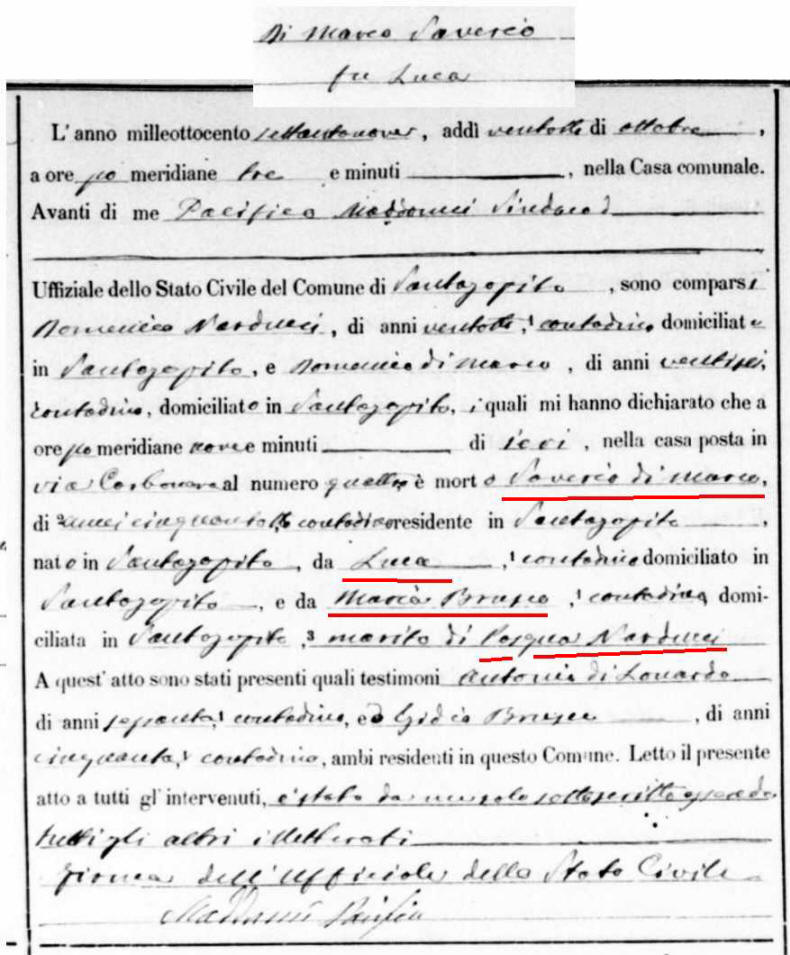 Di Marco Saverio
fu Luca
L'anno milleottocento settantanove, addì ventotto di ottobre,
a ore po meridiane tre e minuti , nella Casa comunale.
Avanti di me Pacifico Sindaco
Uffiziale dello Stato Civile del Comune di Santazopito, sono comparsi
Domenico Narducci, di anni ventotto, contadino domiciliato
in Santazopito, e Domenico di Marco, di anni ventisei,
contadino, domiciliato in Santazopito, i quali mi hanno dichiarato che a
ore po meridiane nove e minuti di ieri, nella casa posta in
via Carbonara al numero quattro è morto Saverio di Marco,
di anni cinquantotto contadino residente in Santazopito,
nato in Santazopito, da Luca, contadino domiciliato in
Santazopito, e da Maria Brusco, contadina, domi-
ciliata in Santazopito, marito di Pasqua Narducci
A quest'atto sono stati presenti quali testimoni Antonio di Lonardo
di anni sessanta, contadino, ed Egidio Brusco, di anni
cinquanta, contadino, ambi residenti in questo Comune. Letto il presente
atto a tutti gl'intervenuti, è stato da me solo sottoscritto essendo
tutti gli altri illetterati
Firma dell'Officiale dello Stato Civile